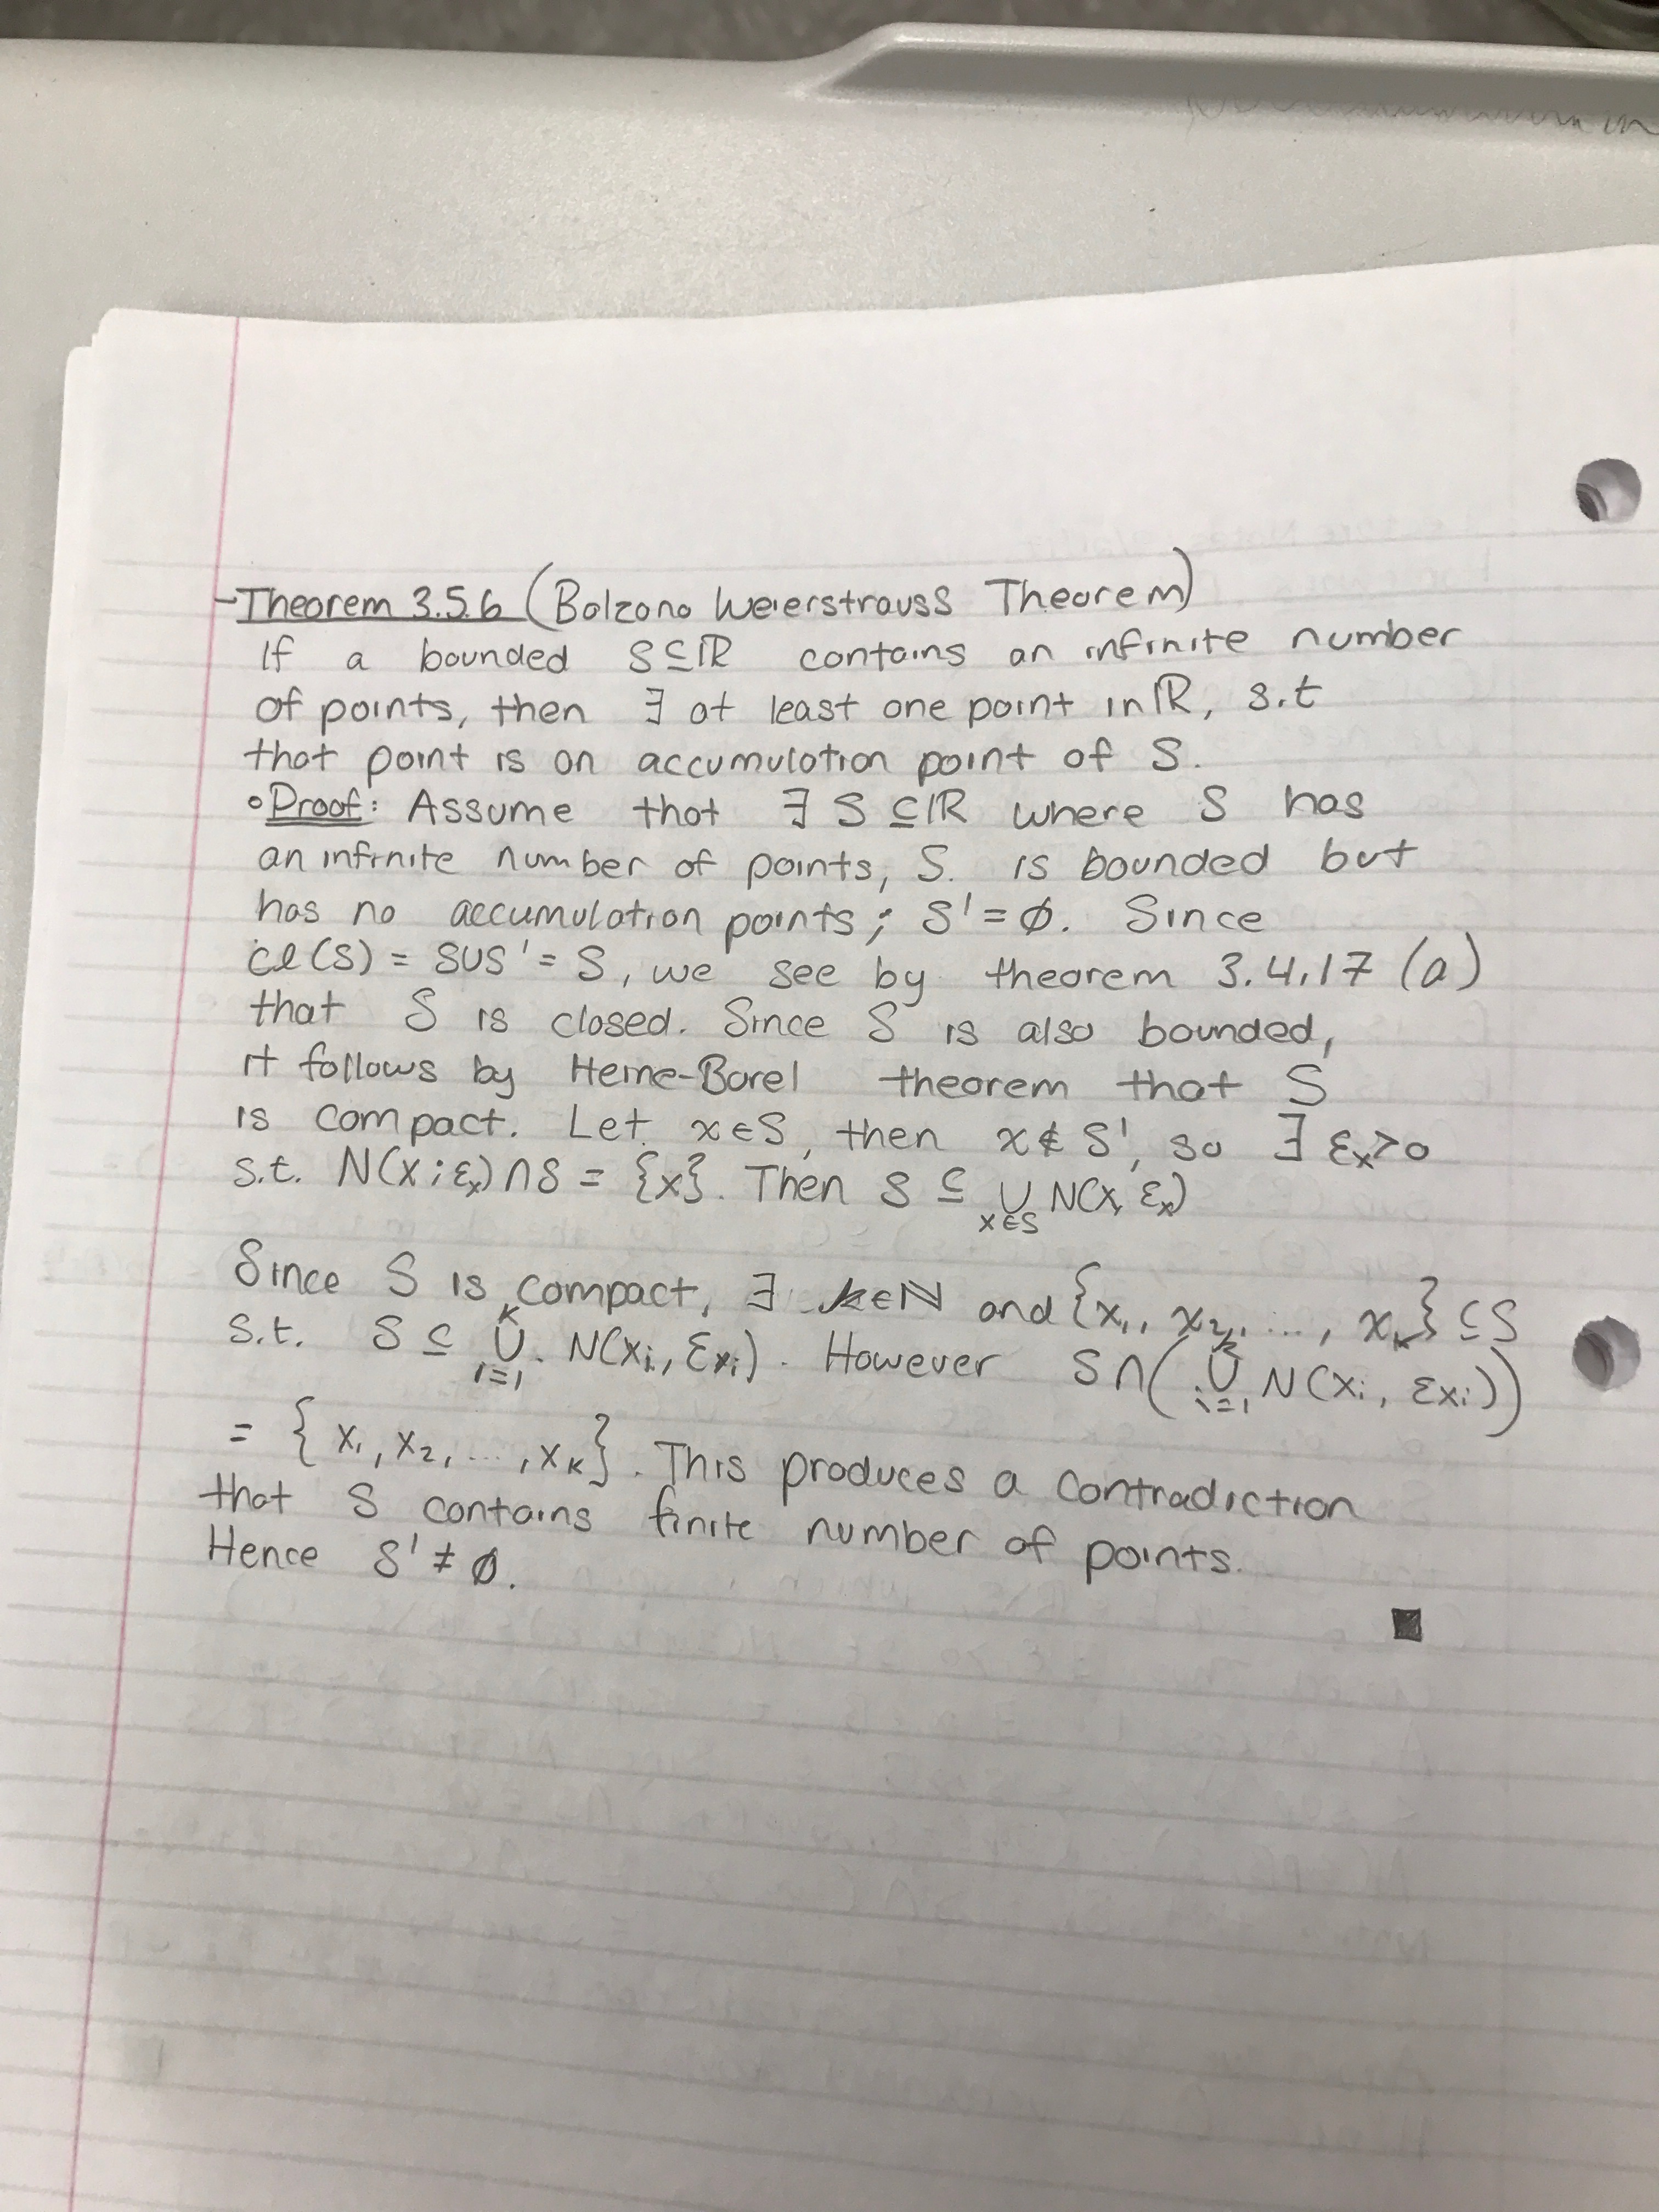 -Theorem 3.5.6 (Bolzono Weierstrauss Theorem)
If a bounded S⊆ℝ contains an infinite number
of points, then ∃ at least one point in ℝ, s.t
that point is an accumulation point of S.
∘Proof: Assume that ∃ S ⊆ℝ where S has
an infinite number of points, S. is bounded but
has no accumulation points; S' = ∅. Since
cl(S) = S∪S' = S, we see by theorem 3.4.17 (a)
that S is closed. Since S is also bounded,
it follows by Heine-Borel theorem that S
is compact. Let x∈S, then x∉S', so ∃ εₓ>0
s.t. N(x; εₓ)∩S = {x}. Then S ⊆ ∪_{x∈S} N(x, εₓ)
Since S is compact, ∃ k∈ℕ and {x₁, x₂, ..., xₖ} ⊆S
s.t. S ⊆ ∪_{i=1}^{k} N(xᵢ, εxᵢ). However S∩(∪_{i=1}^{k} N(xᵢ, εxᵢ))
= {x₁, x₂, ..., xₖ}. This produces a contradiction
that S contains finite number of points.
Hence S' ≠ ∅.
■